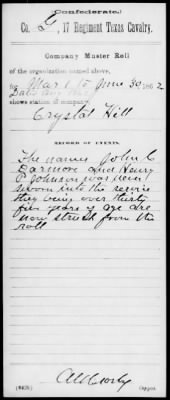 (Confederate.)
Co. G, 17 Regiment Texas Cavalry.
Company Muster Roll
of the organization named above,
for Mar 1 to June 30, 1862
shows station of company,
Crystal Hill
RECORD OF EVENTS.
The names John C
and Henry
P Johnson was never
sworn into the service
they being over thirty
five years of age are
now struck from the
roll
Copyist.